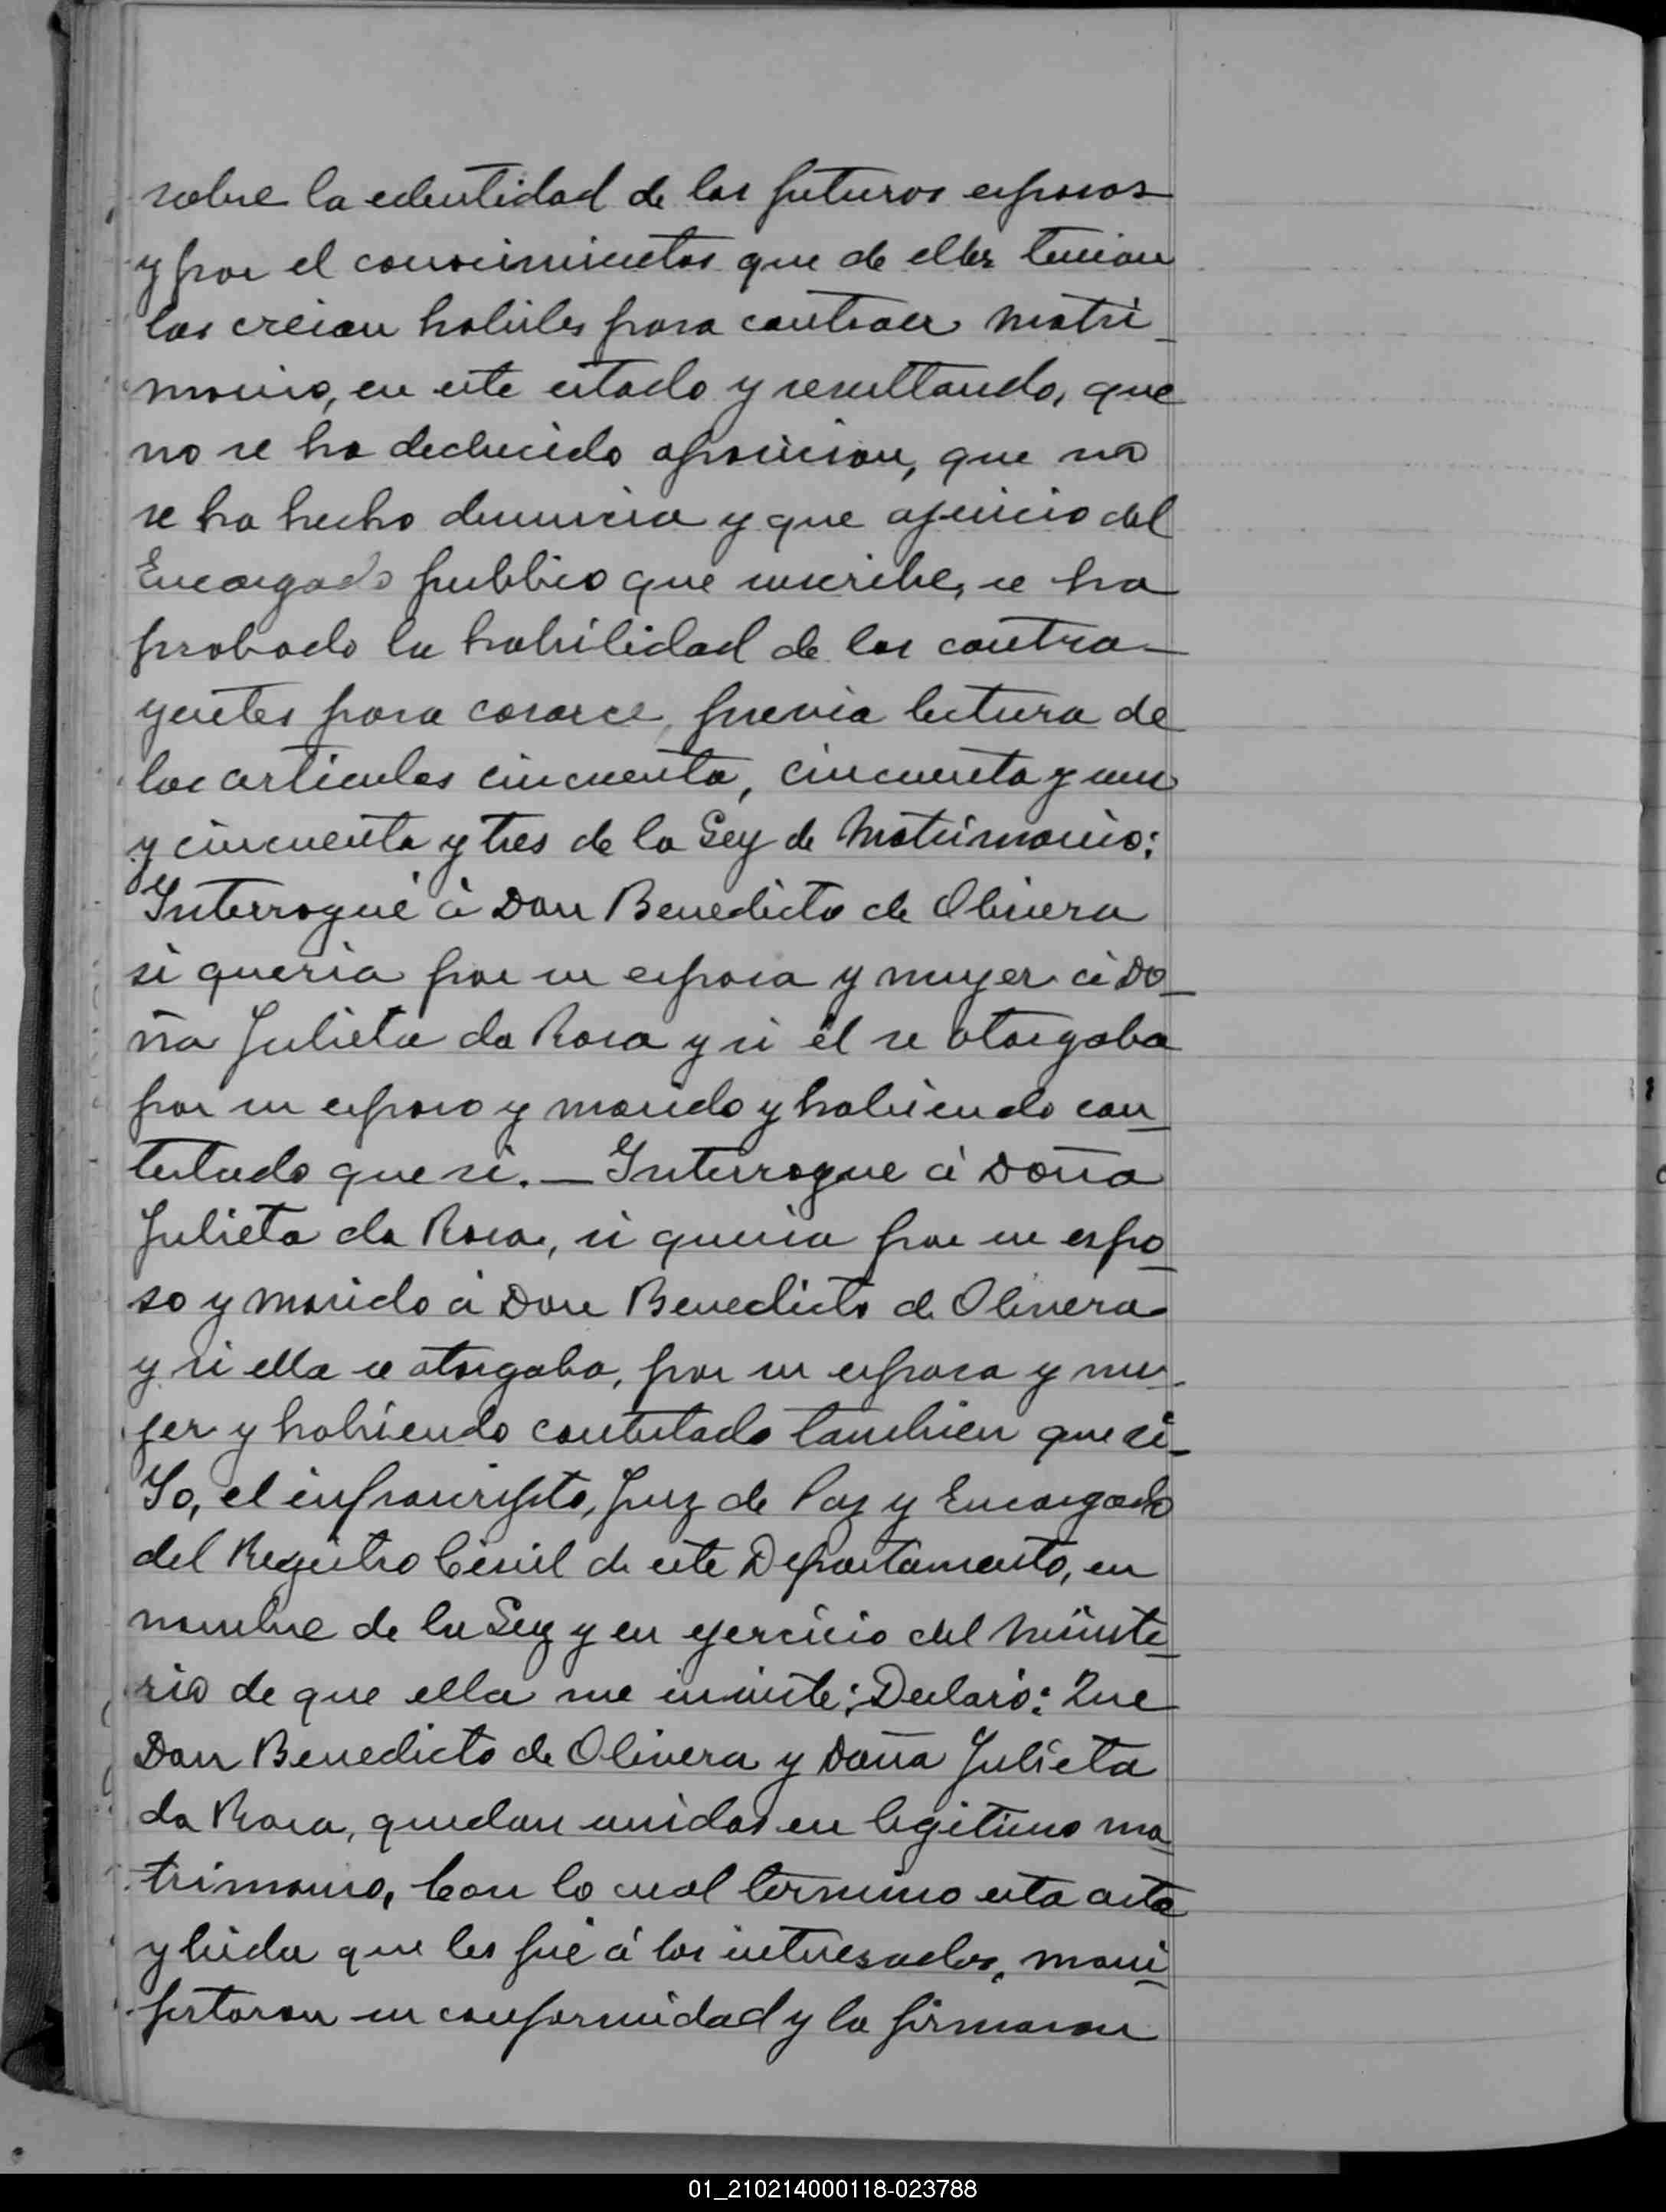 sobre la edentidad de los futuros esposos
y por el conosimientos que de ellos tenian
los creian habiles para contraer matri_
monio, en este estado y resultando, que
no se ha deducido oposicion, que no
se ha hecho denuncia y que ajuicio del
Encargado publico que suscribe, se ha
probado la habilidad de los contra_
yentes para casarce, previa lectura de
los articulos cincuenta, cincuenta y uno
y cincuenta y tres de la Ley de Matrimonio:
Interrogué á Don Benedicto de Olivera
si queria por su esposa y mujer á Do_
ña Julieta da Rosa y si él se otorgaba
por su esposo y marido y habiendo con_
testado que si. _ Interrogue á Doña
Julieta da Rosa, si queria por su espo_
so y marido á Don Benedicto de Olivera
y si ella se otorgaba, por su esposa y mu_
jer y habiendo contestado tambien que si_
Yo, el infrascripto, Juez de Paz y Encargado
del Registro Civil de este Departamento, en
nombre de la Ley y en ejercicio del Ministe_
rio de que ella me inviste: Declaró: Que
Don Benedicto de Olivera y Doña Julieta
da Rosa, quedan unidos en legitimo ma_
trimonio, Con lo cual termino esta acta
y leida que les fué á los interesados, mani_
festaron su conformidad y la firmaron
01_210214000118-023788